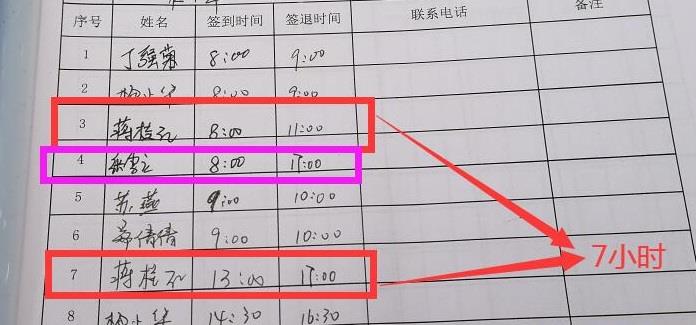 序号 姓名 签到时间 签退时间 联系电话 备注
1 丁强菊 8:00 9:00
2 8:00 9:00
3 蒋桂 8:00 11:00
4 8:00 17:00
5 苏燕 9:00 10:00
6 倩倩 9:00 10:00
7 蒋桂 13:00 17:00
7小时
8 14:30 16:30